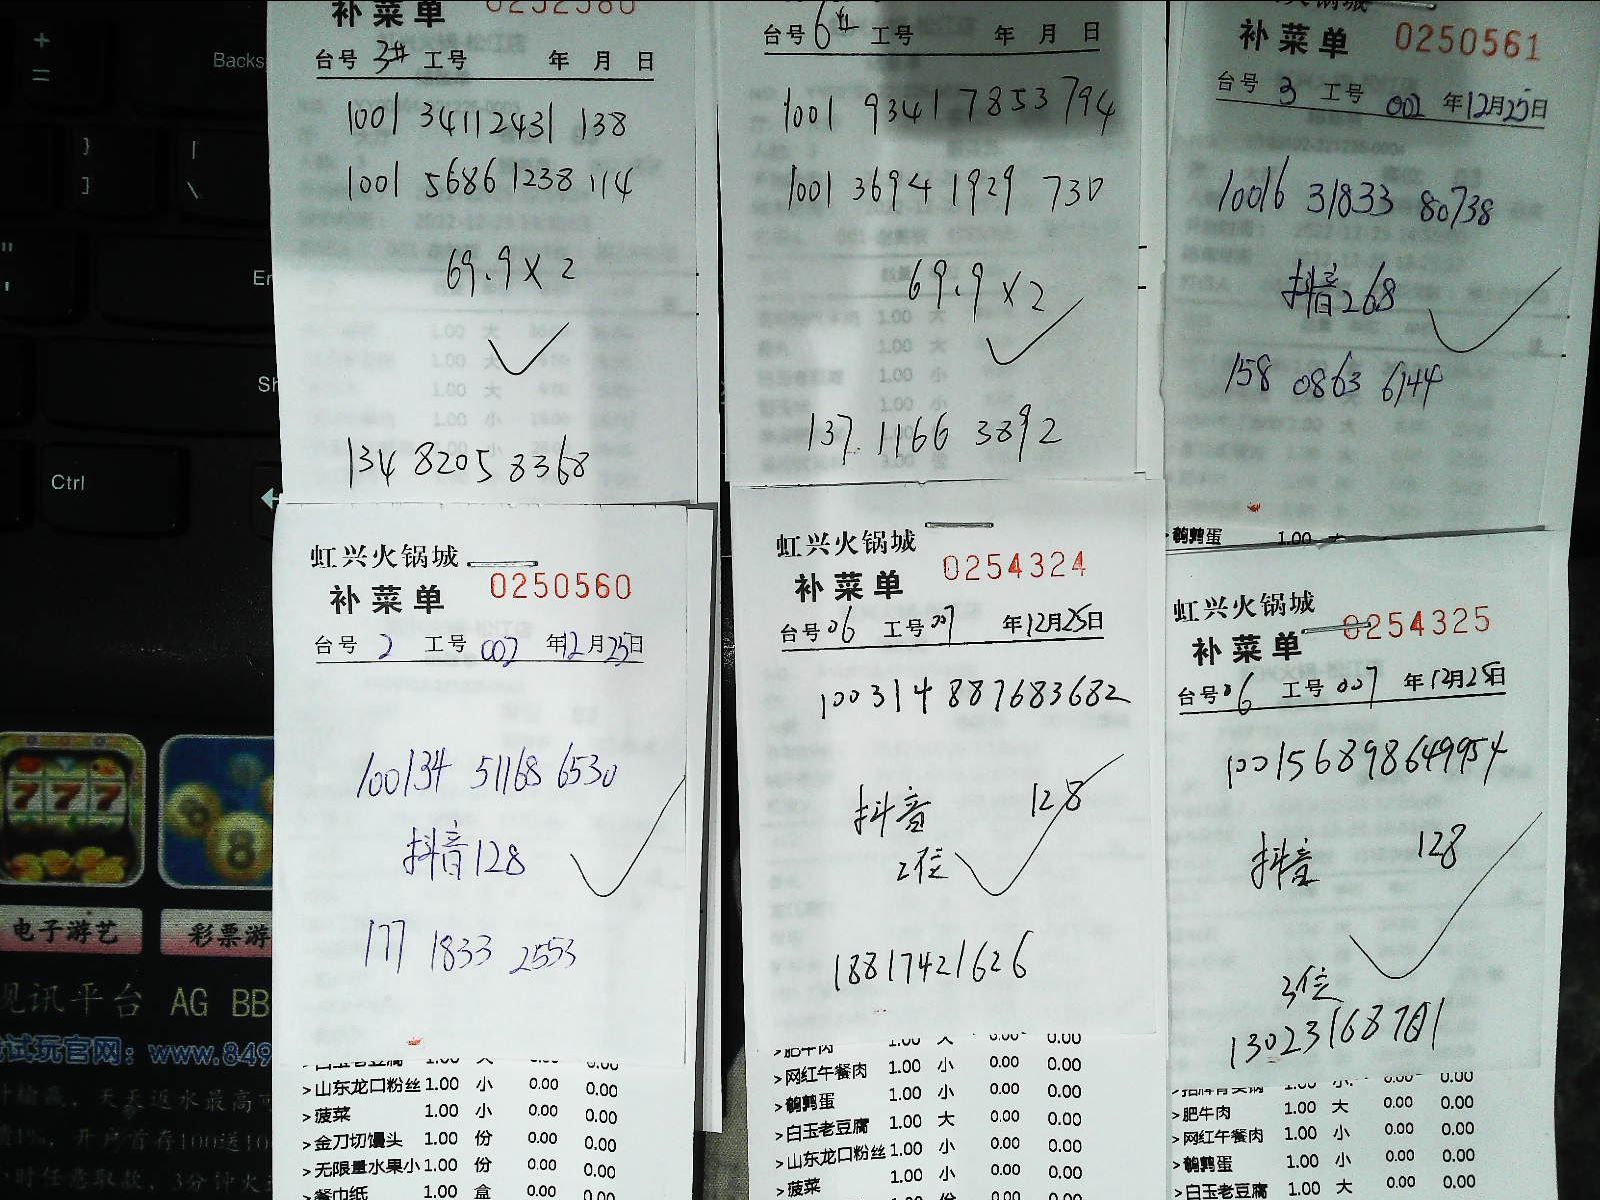 补菜单 0252580
台号 3# 工号 年 月 日
1001 34112431 138
1001 5686 1238 114
69.9 x 2
134 8205 8368
台号 6# 工号 年 月 日
1001 9341 7853 794
1001 3694 1929 730
69.9 x 2
137 1166 3892
补菜单 0250561
台号 3 工号 002 年12月25日
10016 31833 80738
抖音268
158 0863 6144
>鹌鹑蛋 1.00 大
虹兴火锅城
补菜单 0250560
台号 2 工号 002 年12月25日
100134 51168 6530
抖音128
177 1833 2553
>白玉老豆腐 1.00 大 0.00 0.00
>山东龙口粉丝 1.00 小 0.00 0.00
>菠菜 1.00 小 0.00 0.00
>金刀切馒头 1.00 份 0.00 0.00
>无限量水果小 1.00 份 0.00 0.00
>餐巾纸 1.00 盒 0.00 0.00
虹兴火锅城
补菜单 0254324
台号06 工号007 年12月25日
100314 887683682
抖音 128
2位
18817421626
>肥牛肉 1.00 大 0.00 0.00
>网红午餐肉 1.00 小 0.00 0.00
>鹌鹑蛋 1.00 小 0.00 0.00
>白玉老豆腐 1.00 大 0.00 0.00
>山东龙口粉丝 1.00 小 0.00 0.00
>菠菜 1.00 小 0.00 0.00
虹兴火锅城
补菜单 0254325
台号06 工号007 年12月25日
100156898649954
抖音 128
3位
13023168701
>肥牛肉 1.00 大 0.00 0.00
>网红午餐肉 1.00 小 0.00 0.00
>鹌鹑蛋 1.00 小 0.00 0.00
>白玉老豆腐 1.00 大 0.00 0.00
+
=
Backs
}
]
|
\
"
'
En
Sh
Ctrl
777
8
电子游艺
彩票游
视讯平台 AG BB
试玩官网：www.849
天天返水最高可
1%，开户首存100送10
小时任意取款，3分钟火